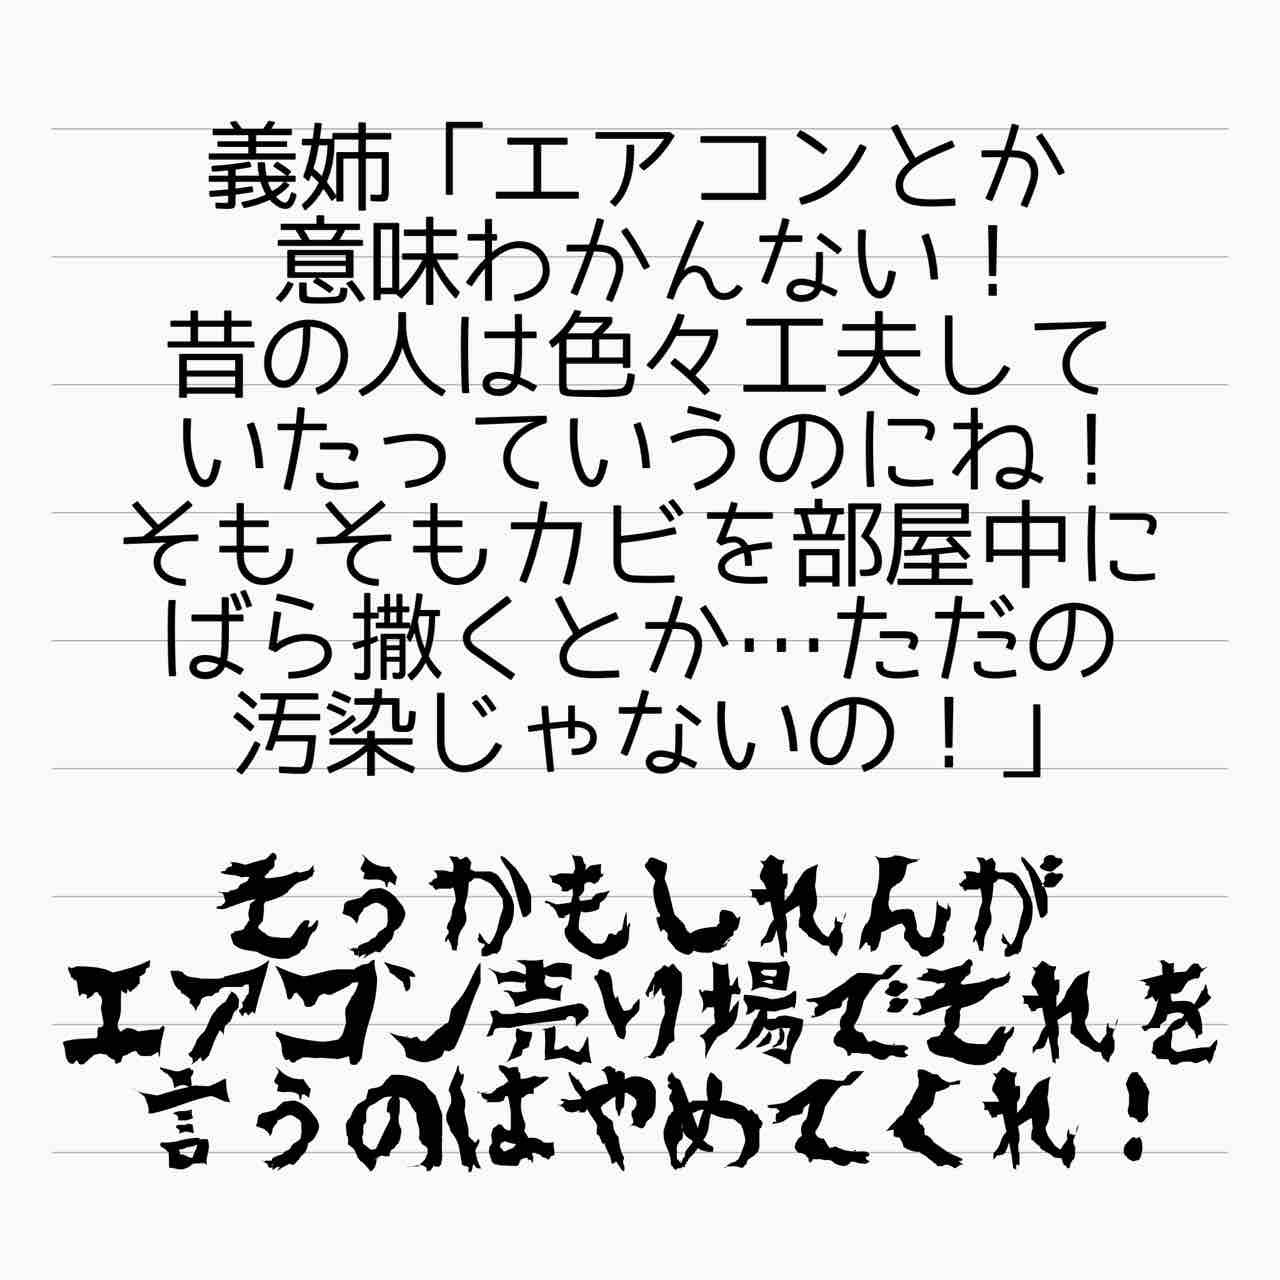 義姉「エアコンとか
意味わかんない！
昔の人は色々工夫して
いたっていうのにね！
そもそもカビを部屋中に
ばら撒くとか…ただの
汚染じゃないの！」
そうかもしれんが
エアコン売り場でそれを
言うのはやめてくれ！